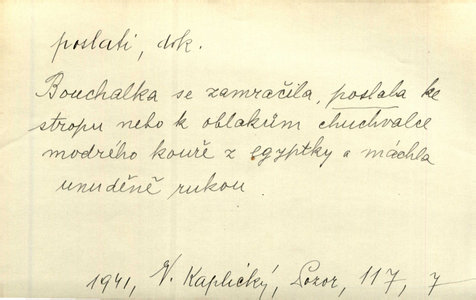 poslati, dok.
Bouchalka se zamračila, poslala ke
stropu nebo k oblakům chuchvalce
modrého kouře z egyptky a máchla
unuděně rukou.
1941, V. Kaplický, Pozor, 117, 7